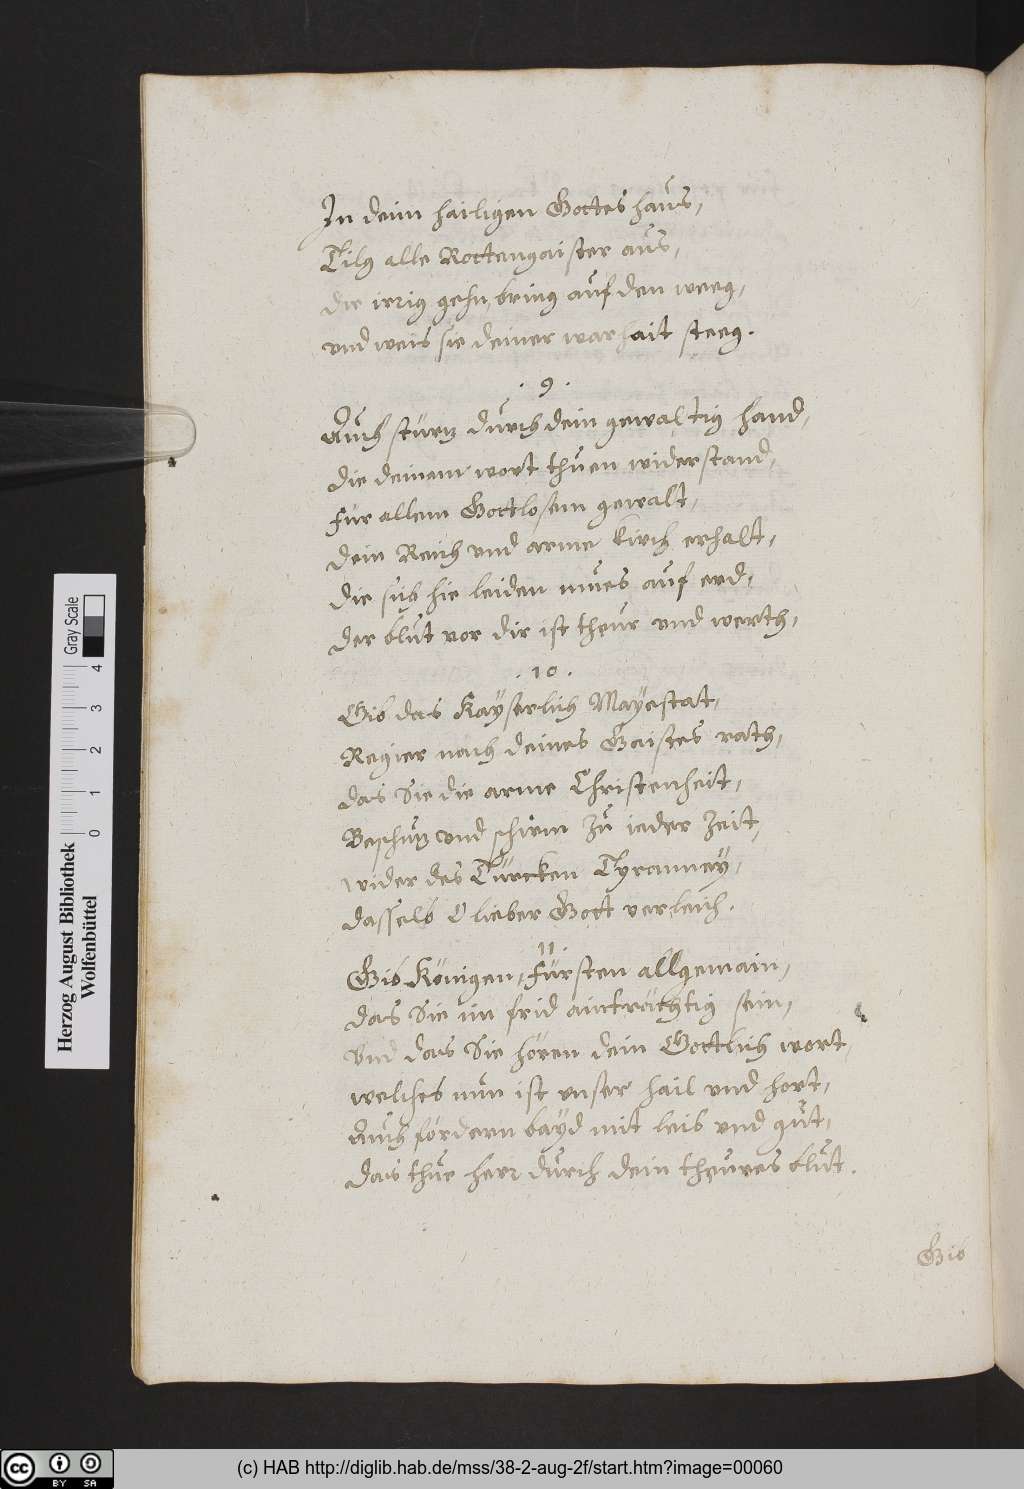 In deim hailigen Gottes haus,
Tilg alle Rottengaister aus,
die irrig gehn, bring auf den weeg,
vnd weis sie deiner warhait steeg.
. 9 .
Auch stürtz durch dein gewaltig hand,
die deinem wort thuen widerstand,
für allem Gottlosem gewalt,
dein Reich vnd arme kirch erhalt,
die sich hie leiden mues auf erd,
der blut vor dir ist theur vnd werth,
. 10 .
Gib das Kayserlich Mayestat,
Regier nach deines Gaistes rath,
das Sie die arme Christenheit,
Beschutz vnd schirm zu ieder Zeit,
wider des Türcken Tyranney,
dasselb O lieber Gott verleich.
11.
Gib Königen, fürsten allgemain,
das Sie im frid ainträchtig sein,
Vnd das Sie hören dein Gottlich wort,
welches nun ist vnser hail vnd hort,
Auch fördern bayd mit leib vnd gut,
das thue herr durch dein theures blut.
Gib
Herzog August Bibliothek
Wolfenbüttel
0 1 2 3 4
Gray Scale
cc BY SA
(c) HAB http://diglib.hab.de/mss/38-2-aug-2f/start.htm?image=00060